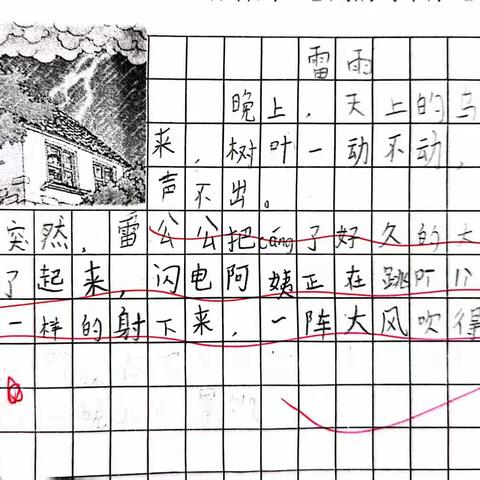 雷雨
晚上，天上的乌
来，树叶一动不动，
声不出。
突然，雷公公把cáng了好久的大
了起来，闪电阿姨正在跳
一样的射下来，一阵大风吹得